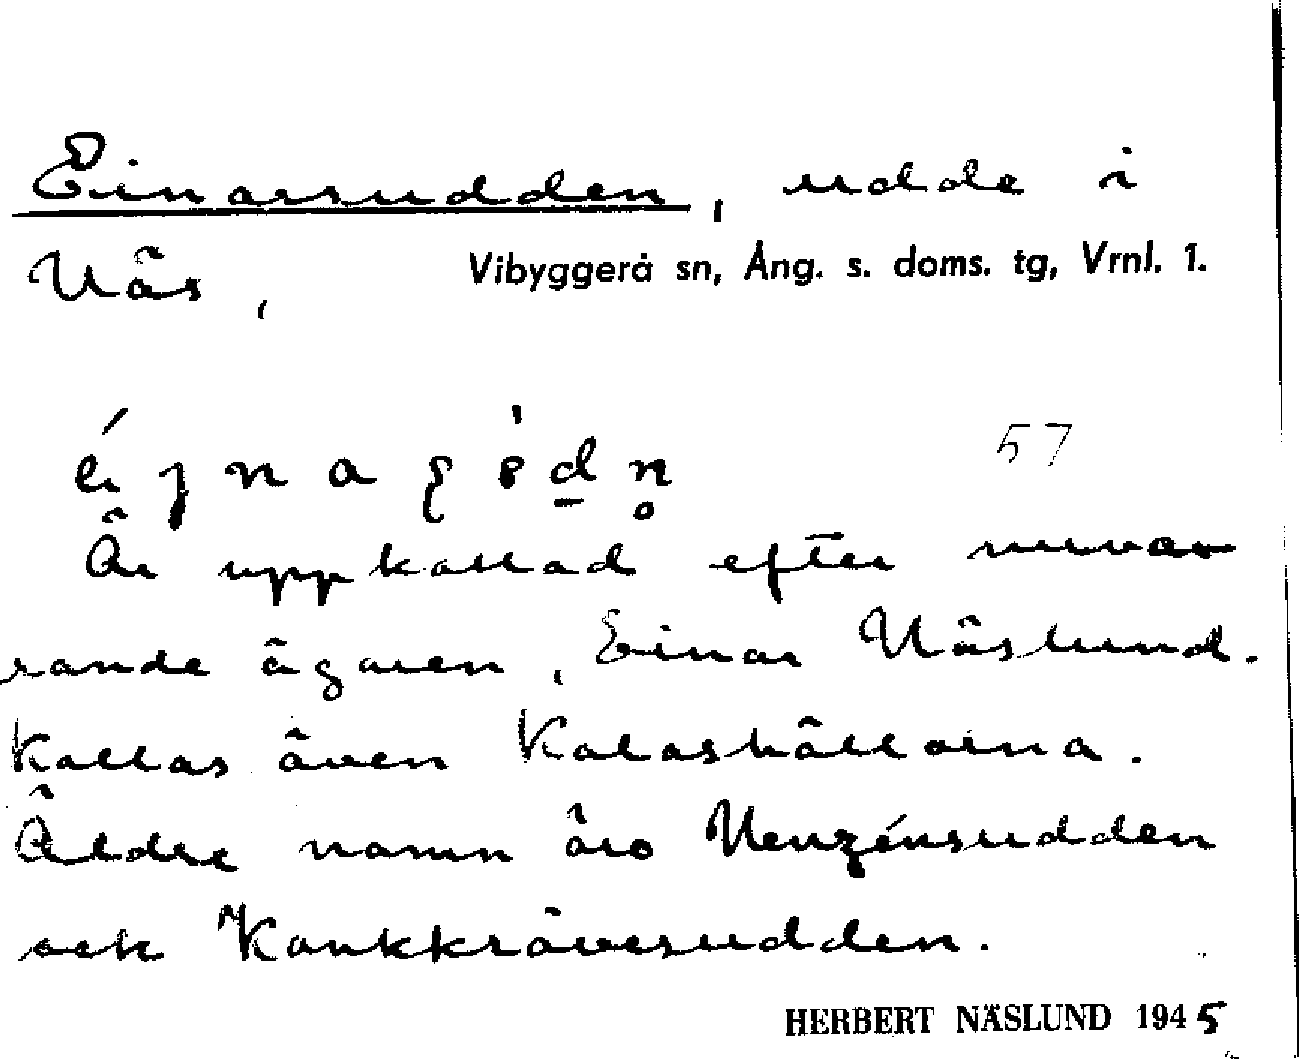 Einarsudden, udde i
Näs,
Vibyggerå sn, Ång. s. doms. tg, Vrnl. 1.
57
Är uppkallad efter nuva-
rande ägaren, Einar Näslund.
Kallas även Kalashällorna.
Äldre namn äro Wenzénsudden
och Kankkrävesudden.
HERBERT NÄSLUND 1945